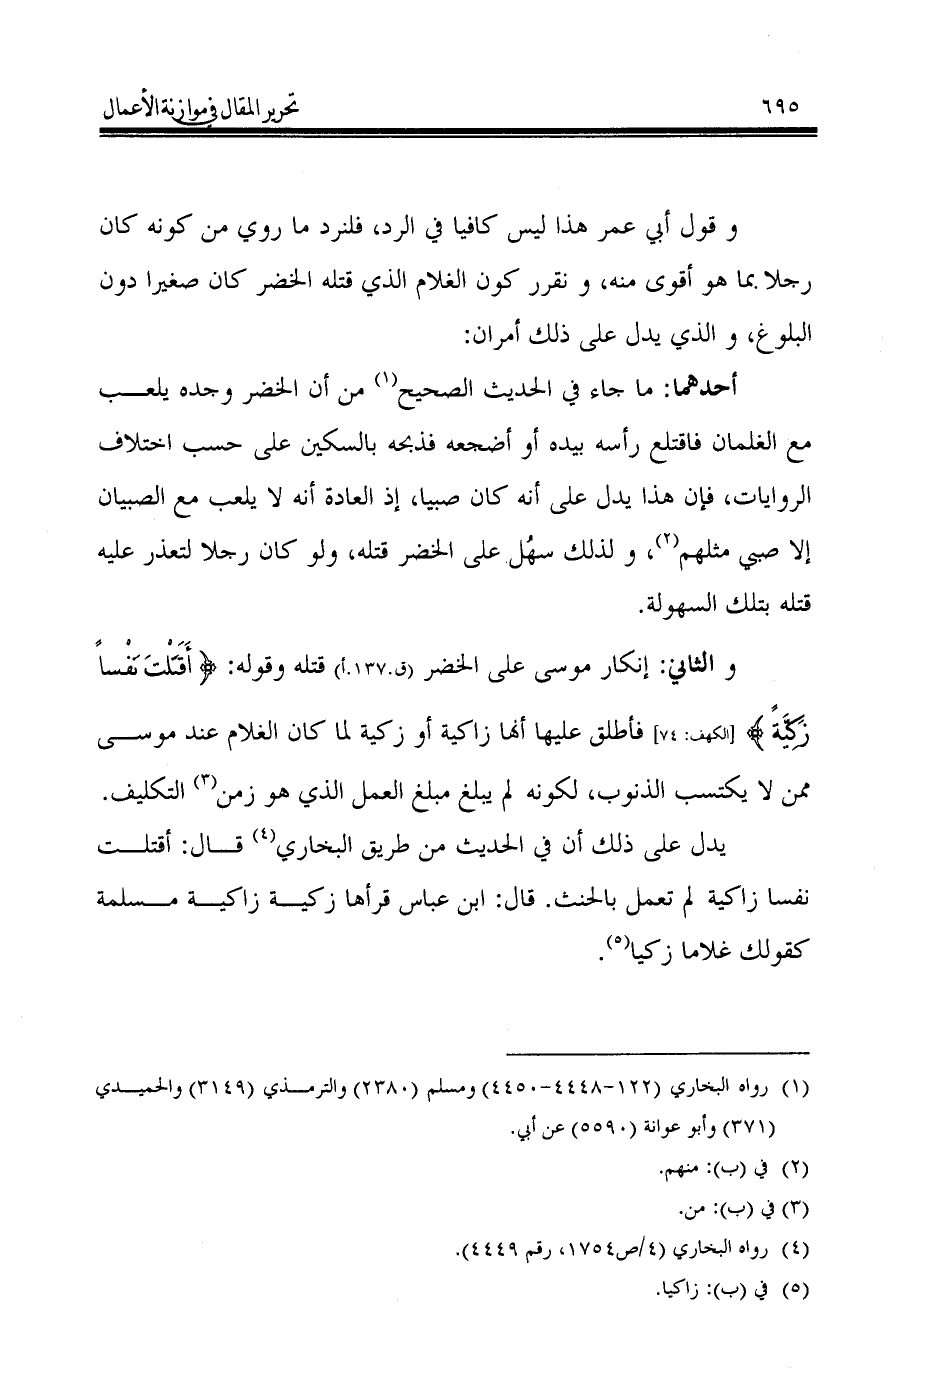 ٦٩٥ تحرير المقال في موازنة الأعمال
و قول أبي عمر هذا ليس كافيا في الرد، فلنرد ما روي من كونه كان
رجلا بما هو أقوى منه، و نقرر كون الغلام الذي قتله الخضر كان صغيرا دون
البلوغ، و الذي يدل على ذلك أمران:
أحدهما: ما جاء في الحديث الصحيح(١) من أن الخضر وجده يلعب
مع الغلمان فاقتلع رأسه بيده أو أضجعه فذبحه بالسكين على حسب اختلاف
الروايات، فإن هذا يدل على أنه كان صبيا، إذ العادة أنه لا يلعب مع الصبيان
إلا صبي مثلهم(٢)، و لذلك سهُل على الخضر قتله، ولو كان رجلا لتعذر عليه
قتله بتلك السهولة.
و الثاني: إنكار موسى على الخضر (ق.١٣٧.أ) قتله وقوله: ﴿ أَقَتَلْتَ نَفْساً
زَكِيَّةً ﴾ [الكهف: ٧٤] فأطلق عليها أنها زاكية أو زكية لما كان الغلام عند موسى
ممن لا يكتسب الذنوب، لكونه لم يبلغ مبلغ العمل الذي هو زمن(٣) التكليف.
يدل على ذلك أن في الحديث من طريق البخاري(٤) قال: أقتلت
نفسا زاكية لم تعمل بالحنث. قال: ابن عباس قرأها زكية زاكية مسلمة
كقولك غلاما زكيا(٥).
(١) رواه البخاري (١٢٢-٤٤٤٨-٤٤٥٠) ومسلم (٢٣٨٠) والترمذي (٣١٤٩) والحميدي
(٣٧١) وأبو عوانة (٥٥٩٠) عن أبي.
(٢) في (ب): منهم.
(٣) في (ب): من.
(٤) رواه البخاري (٤/ص١٧٥٤، رقم ٤٤٤٩).
(٥) في (ب): زاكيا.